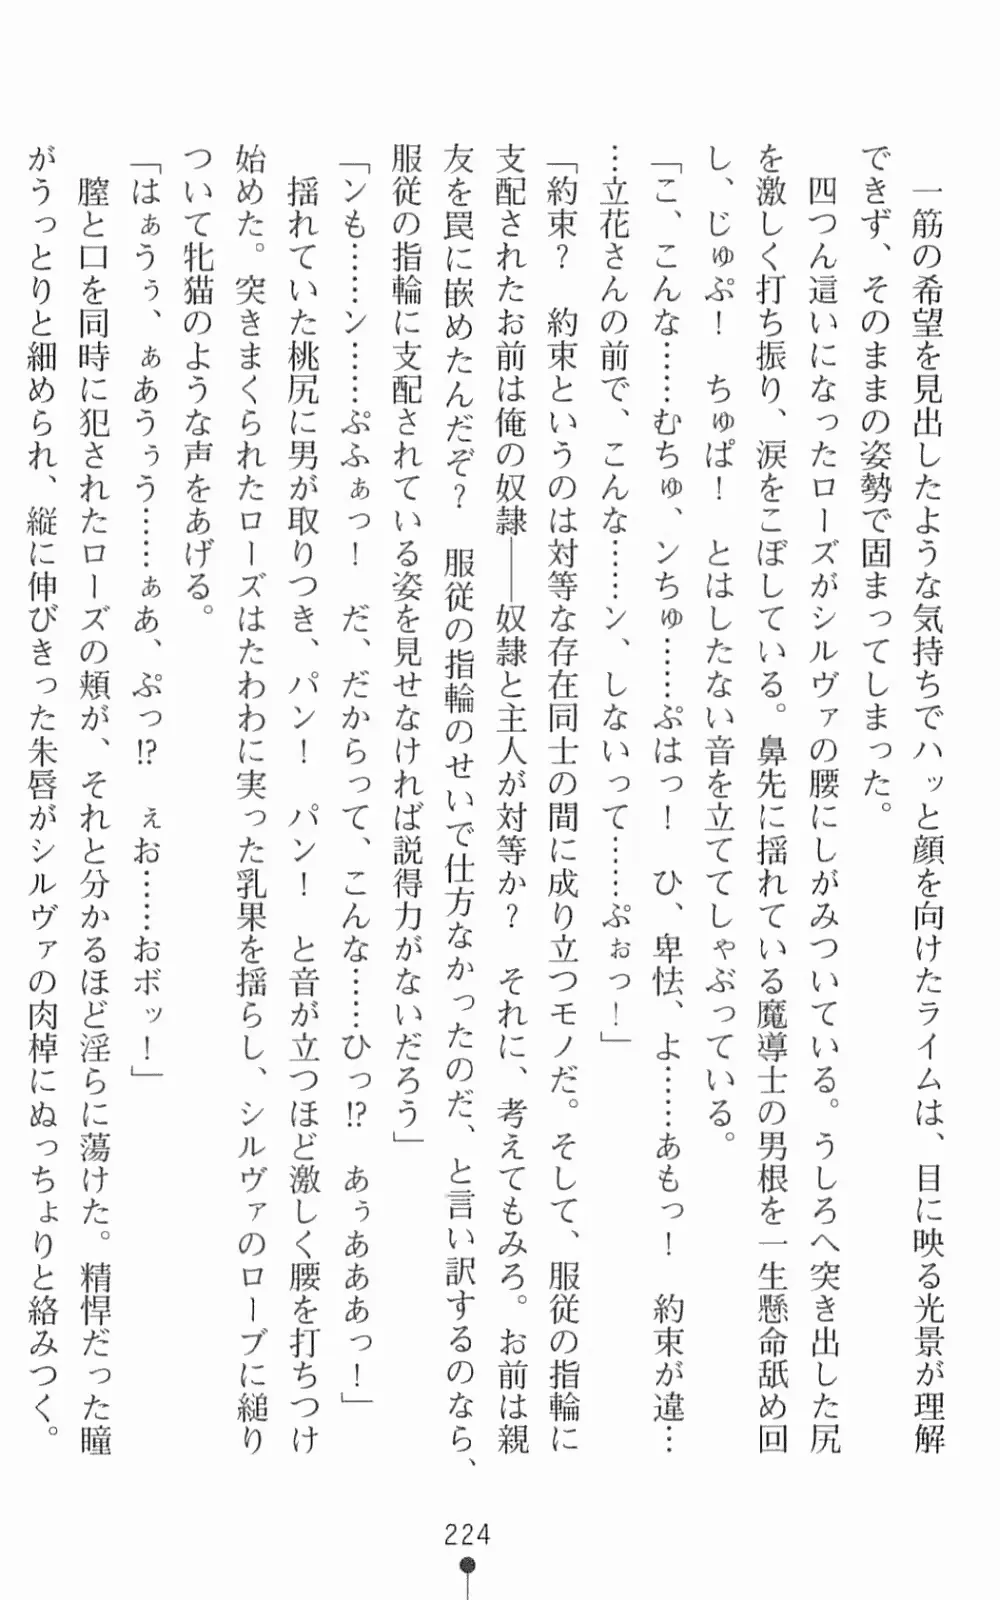 一筋の希望を見出したような気持ちでハッと顔を向けたライムは、目に映る光景が理解
できず、そのままの姿勢で固まってしまった。
四つん這いになったローズがシルヴァの腰にしがみついている。うしろへ突き出した尻
を激しく打ち振り、涙をこぼしている。鼻先に揺れている魔導士の男根を一生懸命舐め回
し、じゅぷ！　ちゅぱ！　とはしたない音を立ててしゃぶっている。
「こ、こんな……むちゅ、ンちゅ……ぷはっ！　ひ、卑怯、よ……あもっ！　約束が違…
…立花さんの前で、こんな……ン、しないって……ぷぉっ！」
「約束？　約束というのは対等な存在同士の間に成り立つモノだ。そして、服従の指輪に
支配されたお前は俺の奴隷――奴隷と主人が対等か？　それに、考えてもみろ。お前は親
友を罠に嵌めたんだぞ？　服従の指輪のせいで仕方なかったのだ、と言い訳するのなら、
服従の指輪に支配されている姿を見せなければ説得力がないだろう」
「ンも……ン……ぷふぁっ！　だ、だからって、こんな……ひっ!?　あぅああぁっ！」
揺れていた桃尻に男が取りつき、パン！　パン！　と音が立つほど激しく腰を打ちつけ
始めた。突きまくられたローズはたわわに実った乳果を揺らし、シルヴァのローブに縋り
ついて牝猫のような声をあげる。
「はぁうぅ、ぁあうぅう……ぁあ、ぷっ!?　ぇお……おボッ！」
膣と口を同時に犯されたローズの頬が、それと分かるほど淫らに蕩けた。精悍だった瞳
がうっとりと細められ、縦に伸びきった朱唇がシルヴァの肉棹にぬっちょりと絡みつく。
224